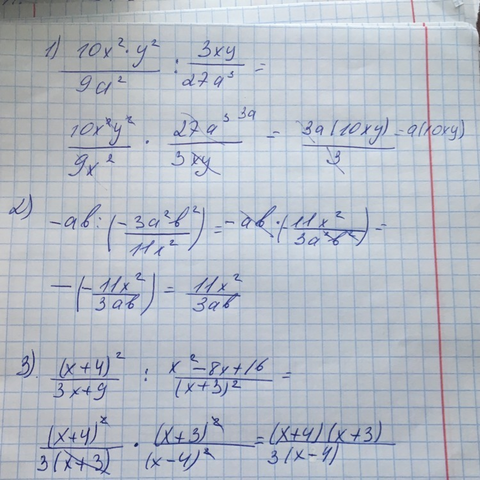 1) 10x²·y²/9a² : 3xy/27a³ =
10x²y²/9x² · 27a³ 3a/3xy = 3a(10xy)/3 = a(10xy)
2) -ab : (-3a²b²/11x²) = -ab · (-11x²/3a²b²) =
-(-11x²/3ab) = 11x²/3ab
3) (x+4)²/3x+9 : x²-8x+16/(x+3)² =
(x+4)²/3(x+3) · (x+3)²/(x-4)² = (x+4)(x+3)/3(x-4)